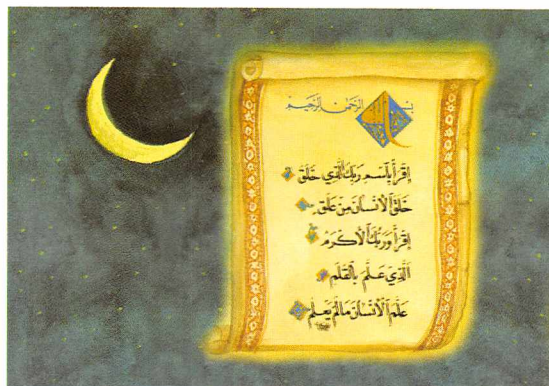 بسم الله الرحمن الرحيم
اِقْرَأْ بِاسْمِ رَبِّكَ الَّذِي خَلَقَ
خَلَقَ الْاِنْسَانَ مِنْ عَلَقٍ
اِقْرَأْ وَرَبُّكَ الْاَكْرَمُ
اَلَّذِي عَلَّمَ بِالْقَلَمِ
عَلَّمَ الْاِنْسَانَ مَا لَمْ يَعْلَمْ